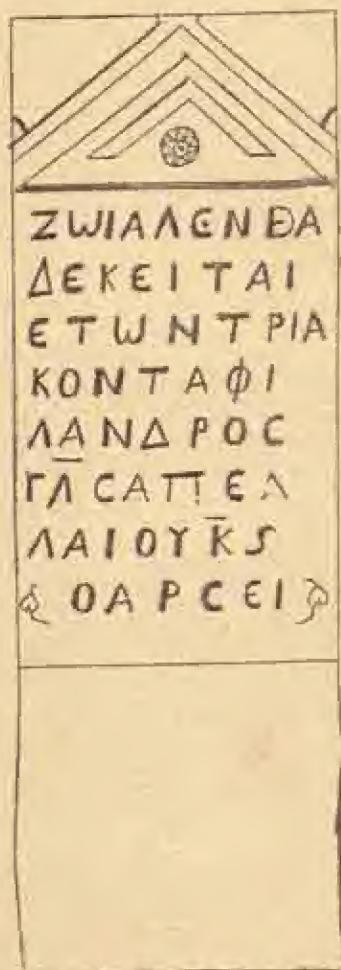 ΖΩΙΑΛΕΝΘΑ
ΔΕΚΕΙΤΑΙ
ΕΤΩΝΤΡΙΑ
ΚΟΝΤΑΦΙ
ΛΑΝΔΡΟϹ
ΓΛ̅ϹΑΠΕΛ
ΛΑΙΟΥΚ̅Ϛ
ΟΑΡϹΕΙ